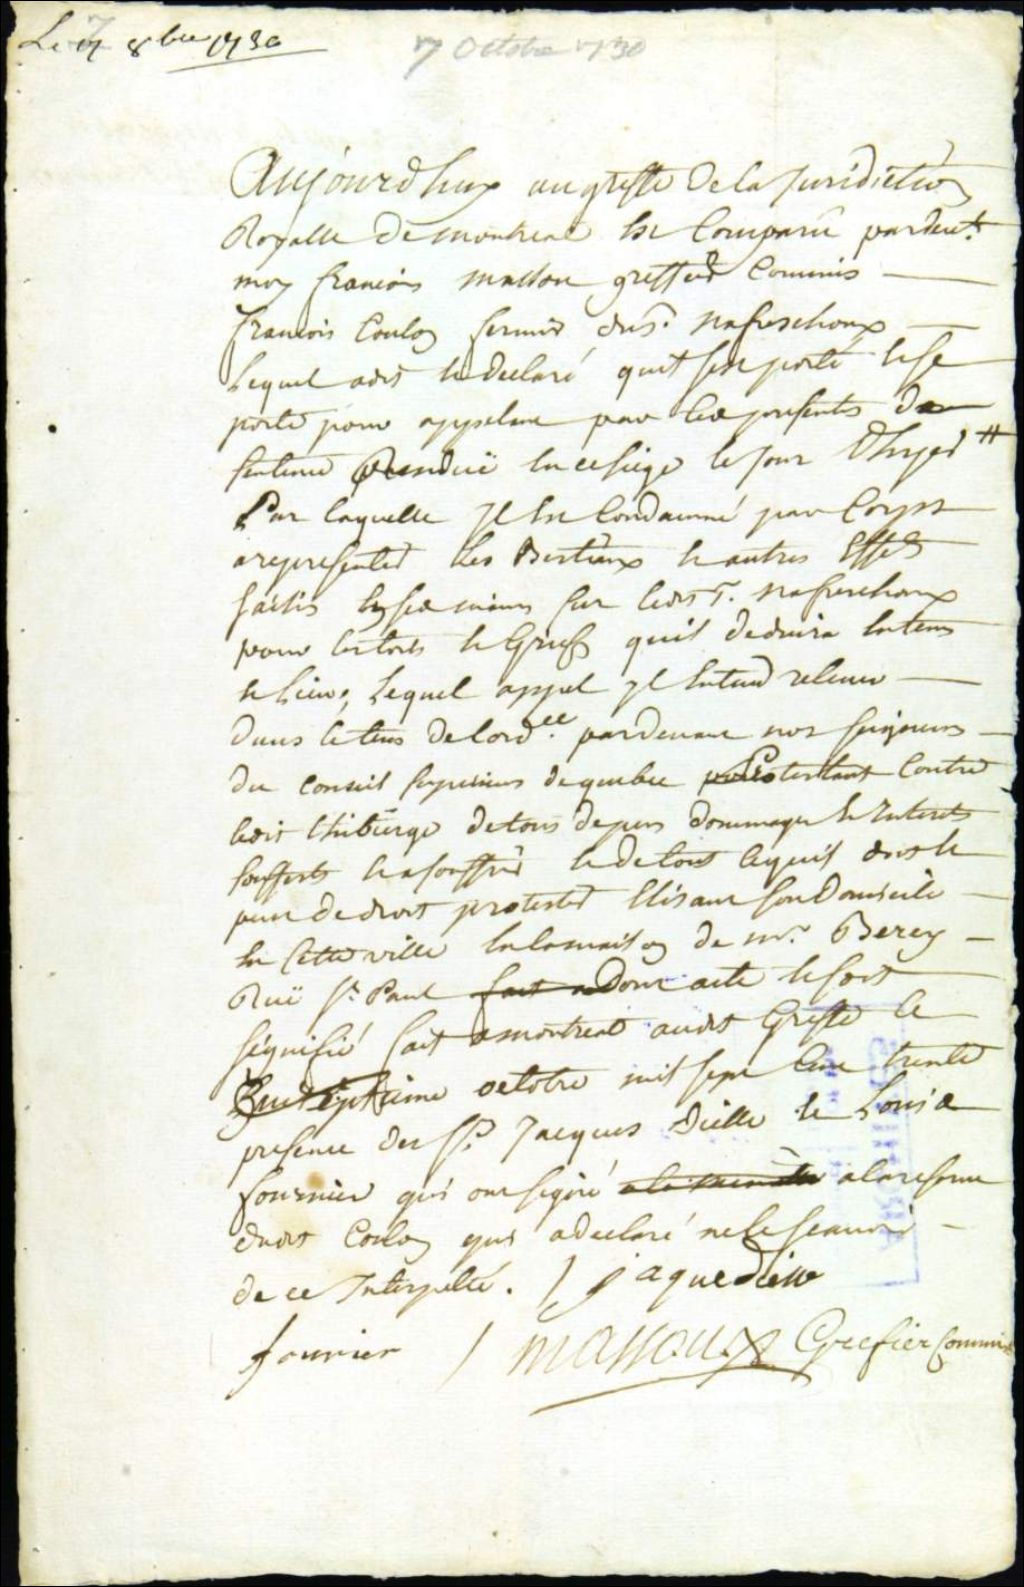 Le 7 8bre 1730
7 Octobre 1730
Aujourdhuy au greffe De la Jurisdiction
Royalle De montreal Est Comparu pardevt.
moy francois masson greffier Commis
francois Coulon fermier du Sr. nafrechoux
Lequel a dit et declaré quil sest porté et se
porte pour appelant par les presentes De
sentence Renduë en ce siege le jour Dhyer #
Par laquelle Jl Est Condamné par Corps
a representer Les Bestiaux et autres Effets
saisis En ses mains sur ledit Sr. nafrechoux
pour les torts et Griefs quil deduira En tems
et Lieu, Lequel appel Jl Entend relever
dans le tems De lordce. pardevant nos seigneurs
du Conseil superieur de quebec protestant Contre
ledit thibierge de tous depens dommages et Interets
soufferts et a souffrir et de tout ce quil doit et
peut de droit protester Elisant son Domicile
En Cette ville En la maison de mr. Berey
Ruë St. Paul fait a Dont acte et soit
signifié fait a montreal audit Greffe le
septieme octobre mil sept Cent trente
presence des Srs. Jacques dielle et Louis
fournier qui ont signé a la minutte a la reserve
dudit Coulon qui a declaré ne le scavoir
de ce Interpellé. / jaque dielle
fournier / Masson Grefier Commis